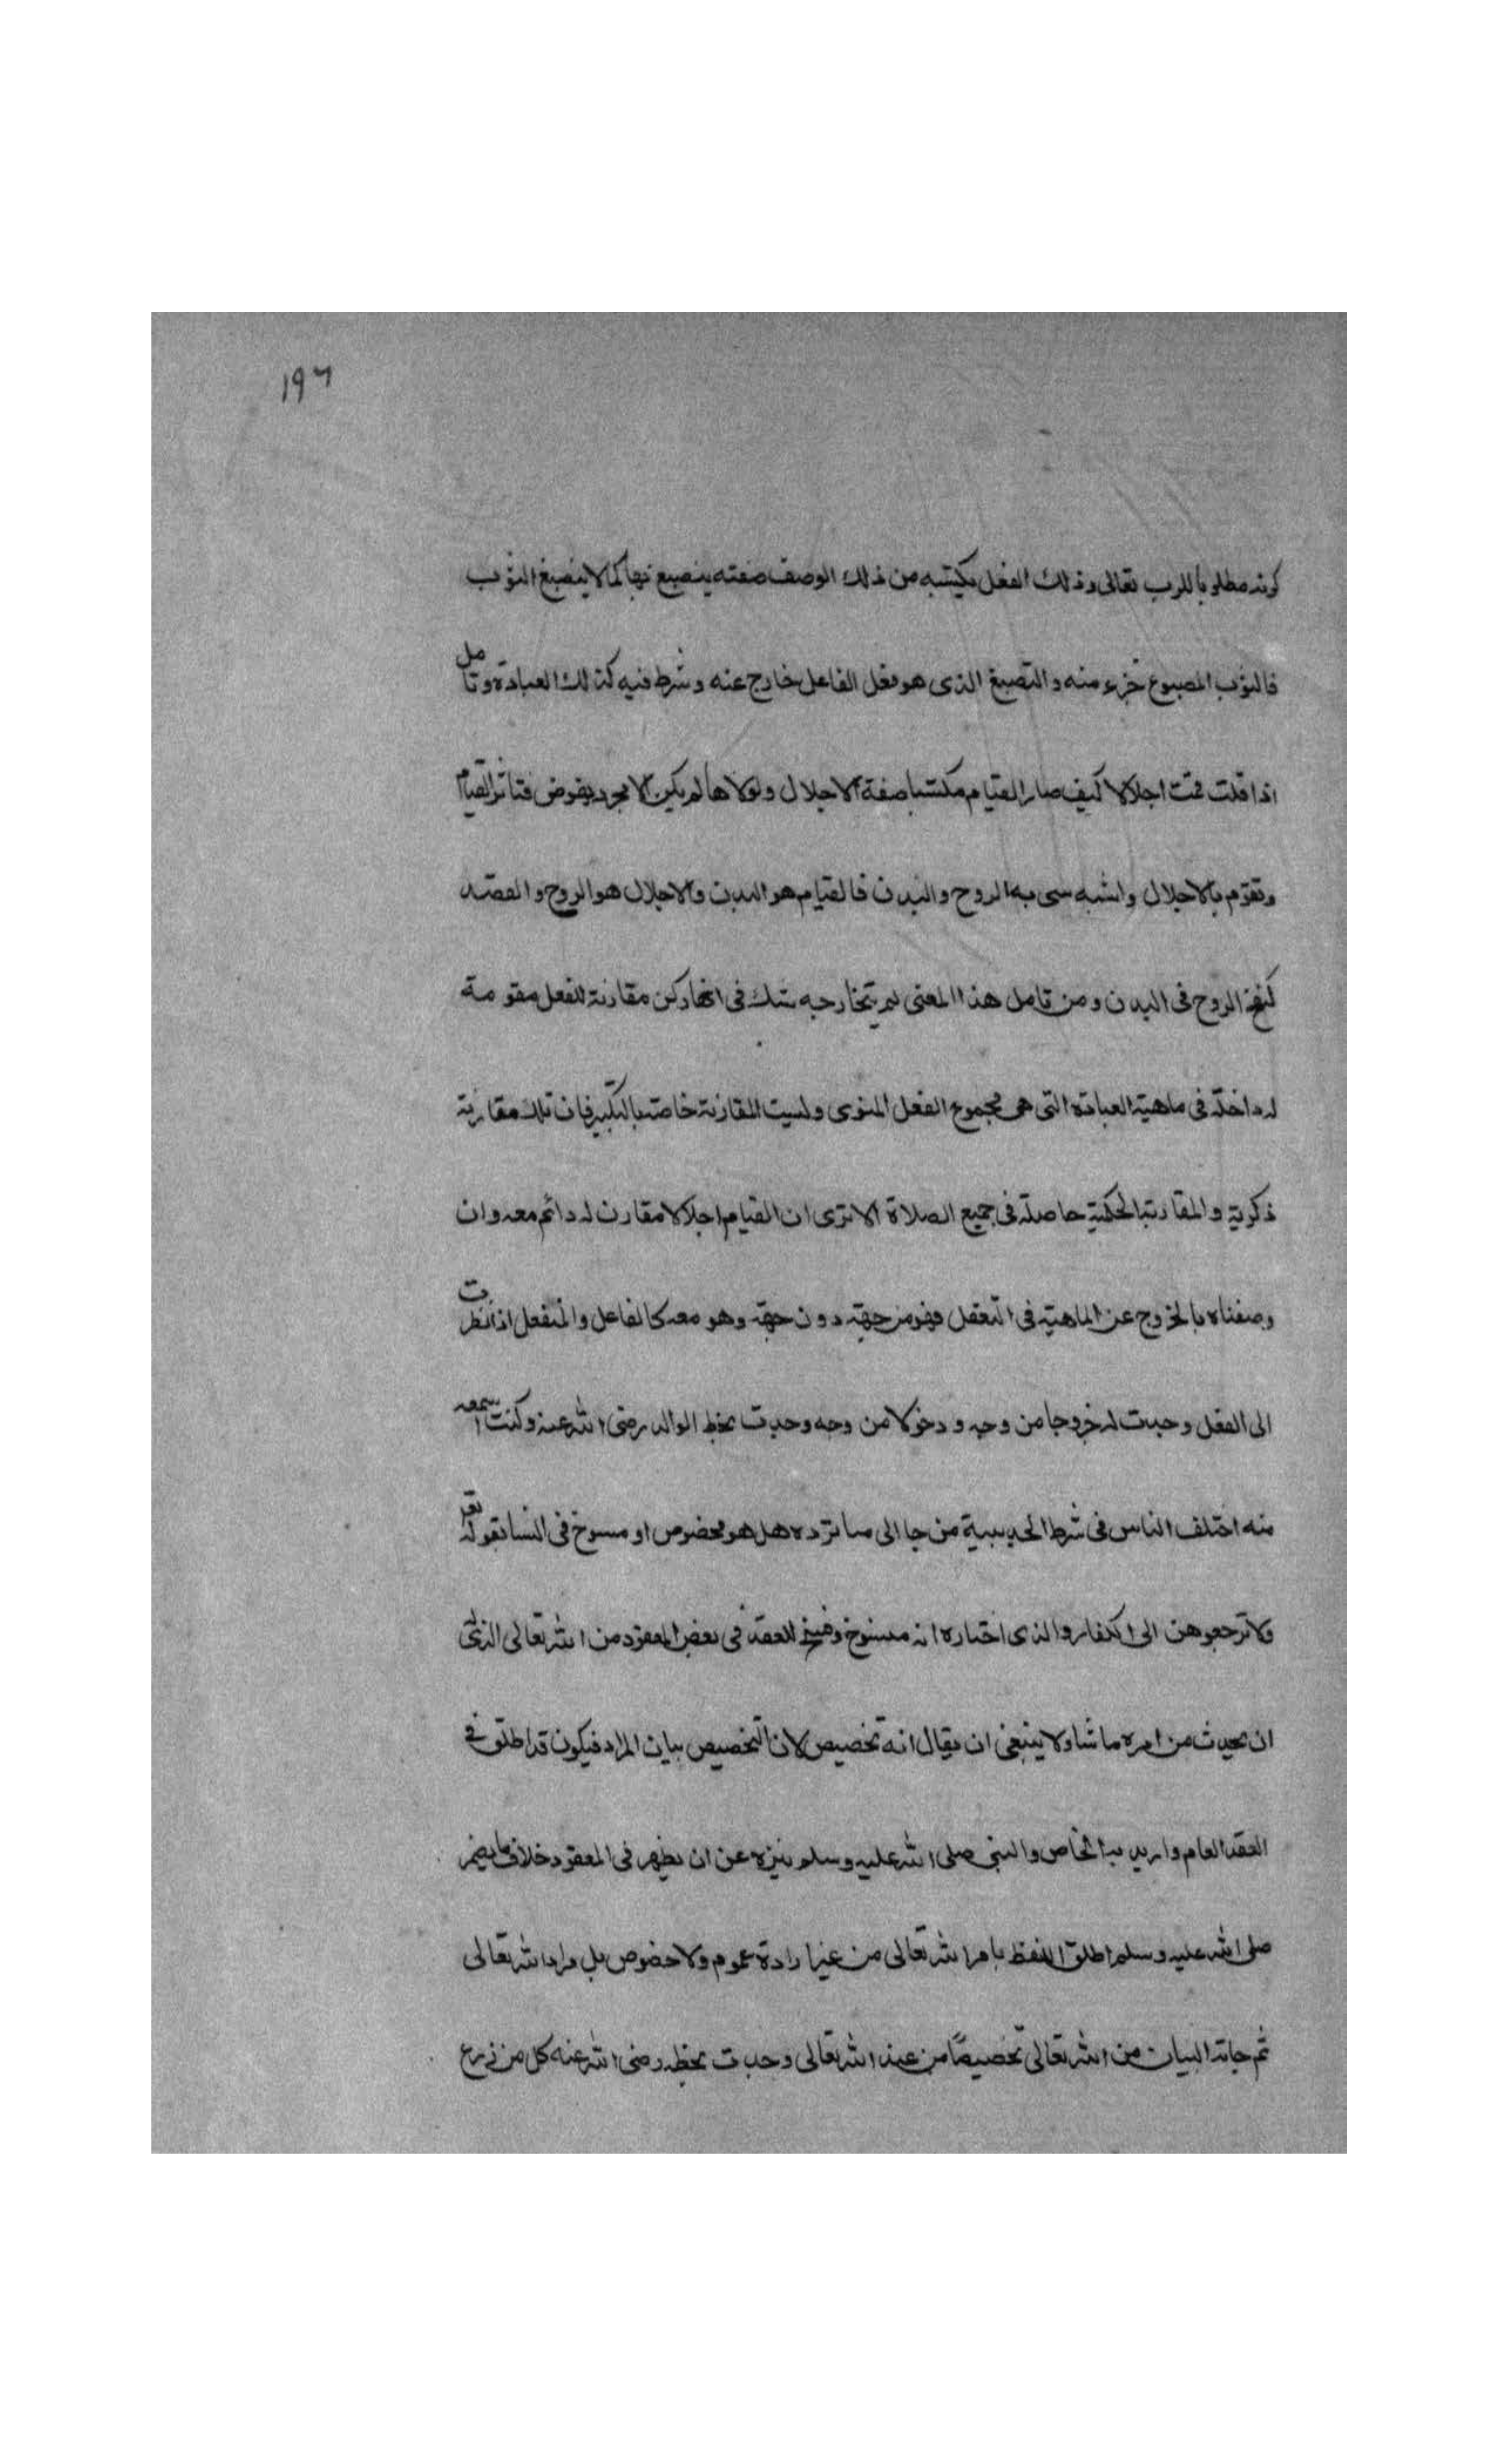 ١٩٦
كونه مطلوبا للرب تعالى وذلك الفعل يكتسبه من ذلك الوصف صفته ينصبغ بها كما لا ينصبغ الثوب
فالثوب المصبوغ جزء منه والتصبيغ الذى هو فعل الفاعل خارج عنه وشرط فيه كذلك العبادة وتامل
اذا قلت قمت اجلالا كيف صار القيام مكتسبا صفة الاجلال ولولاها لم يكن الا مجرد نهوض فتاثر القيام
وتقوم بالاجلال واشبه سى به الروح والبدن فالقيام هو البدن والاجلال هو الروح والقصد
كنفخ الروح فى البدن ومن تامل هذا المعنى لم يتخارجه شك فى انها ركن مقارنة للفعل مقومة
له داخلة فى ماهية العبادة التى هى مجموع الفعل المنوى وليست المقارنة خاصة بالتكبير فان تلك مقارنة
ذكرية والمقارنة الحكمية حاصلة فى جميع الصلاة الا ترى ان القيام اجلالا مقارن له دائم معه وان
وصفناه بالخروج عن الماهية فى التعقل فهو من جهة دون جهة وهو معه كالفاعل والمنفعل اذا نظرت
الى الفعل وجدت له خروجا من وجه ودخولا من وجه وجدت بخط الوالد رضى الله عنه وكنت اسمعه
منه اختلف الناس فى شرط الحديبية من جا الى مسا نرده هل هو مخصوص او منسوخ فى النسا بقوله تعالى
ولا ترجعوهن الى الكفار والذى اختاره انه منسوخ وفسخ للعقد فى بعض المعقود من الله تعالى الذى
ان يحدث من امره ما شا ولا ينبغى ان يقال انه تخصيص لان التخصيص بيان المراد فيكون قد اطلق فى
العقد العام واريد به الخاص والنبى صلى الله عليه وسلم ينزه عن ان يظهر فى المعقود خلاف ما يضمر
صلى الله عليه وسلم اطلق اللفظ بامر الله تعالى من غير ارادة عموم ولا خصوص بل مراد الله تعالى
ثم جاته البيان من الله تعالى تخصيصا من عند الله تعالى وجدت بخطه رضى الله عنه كل من زرع